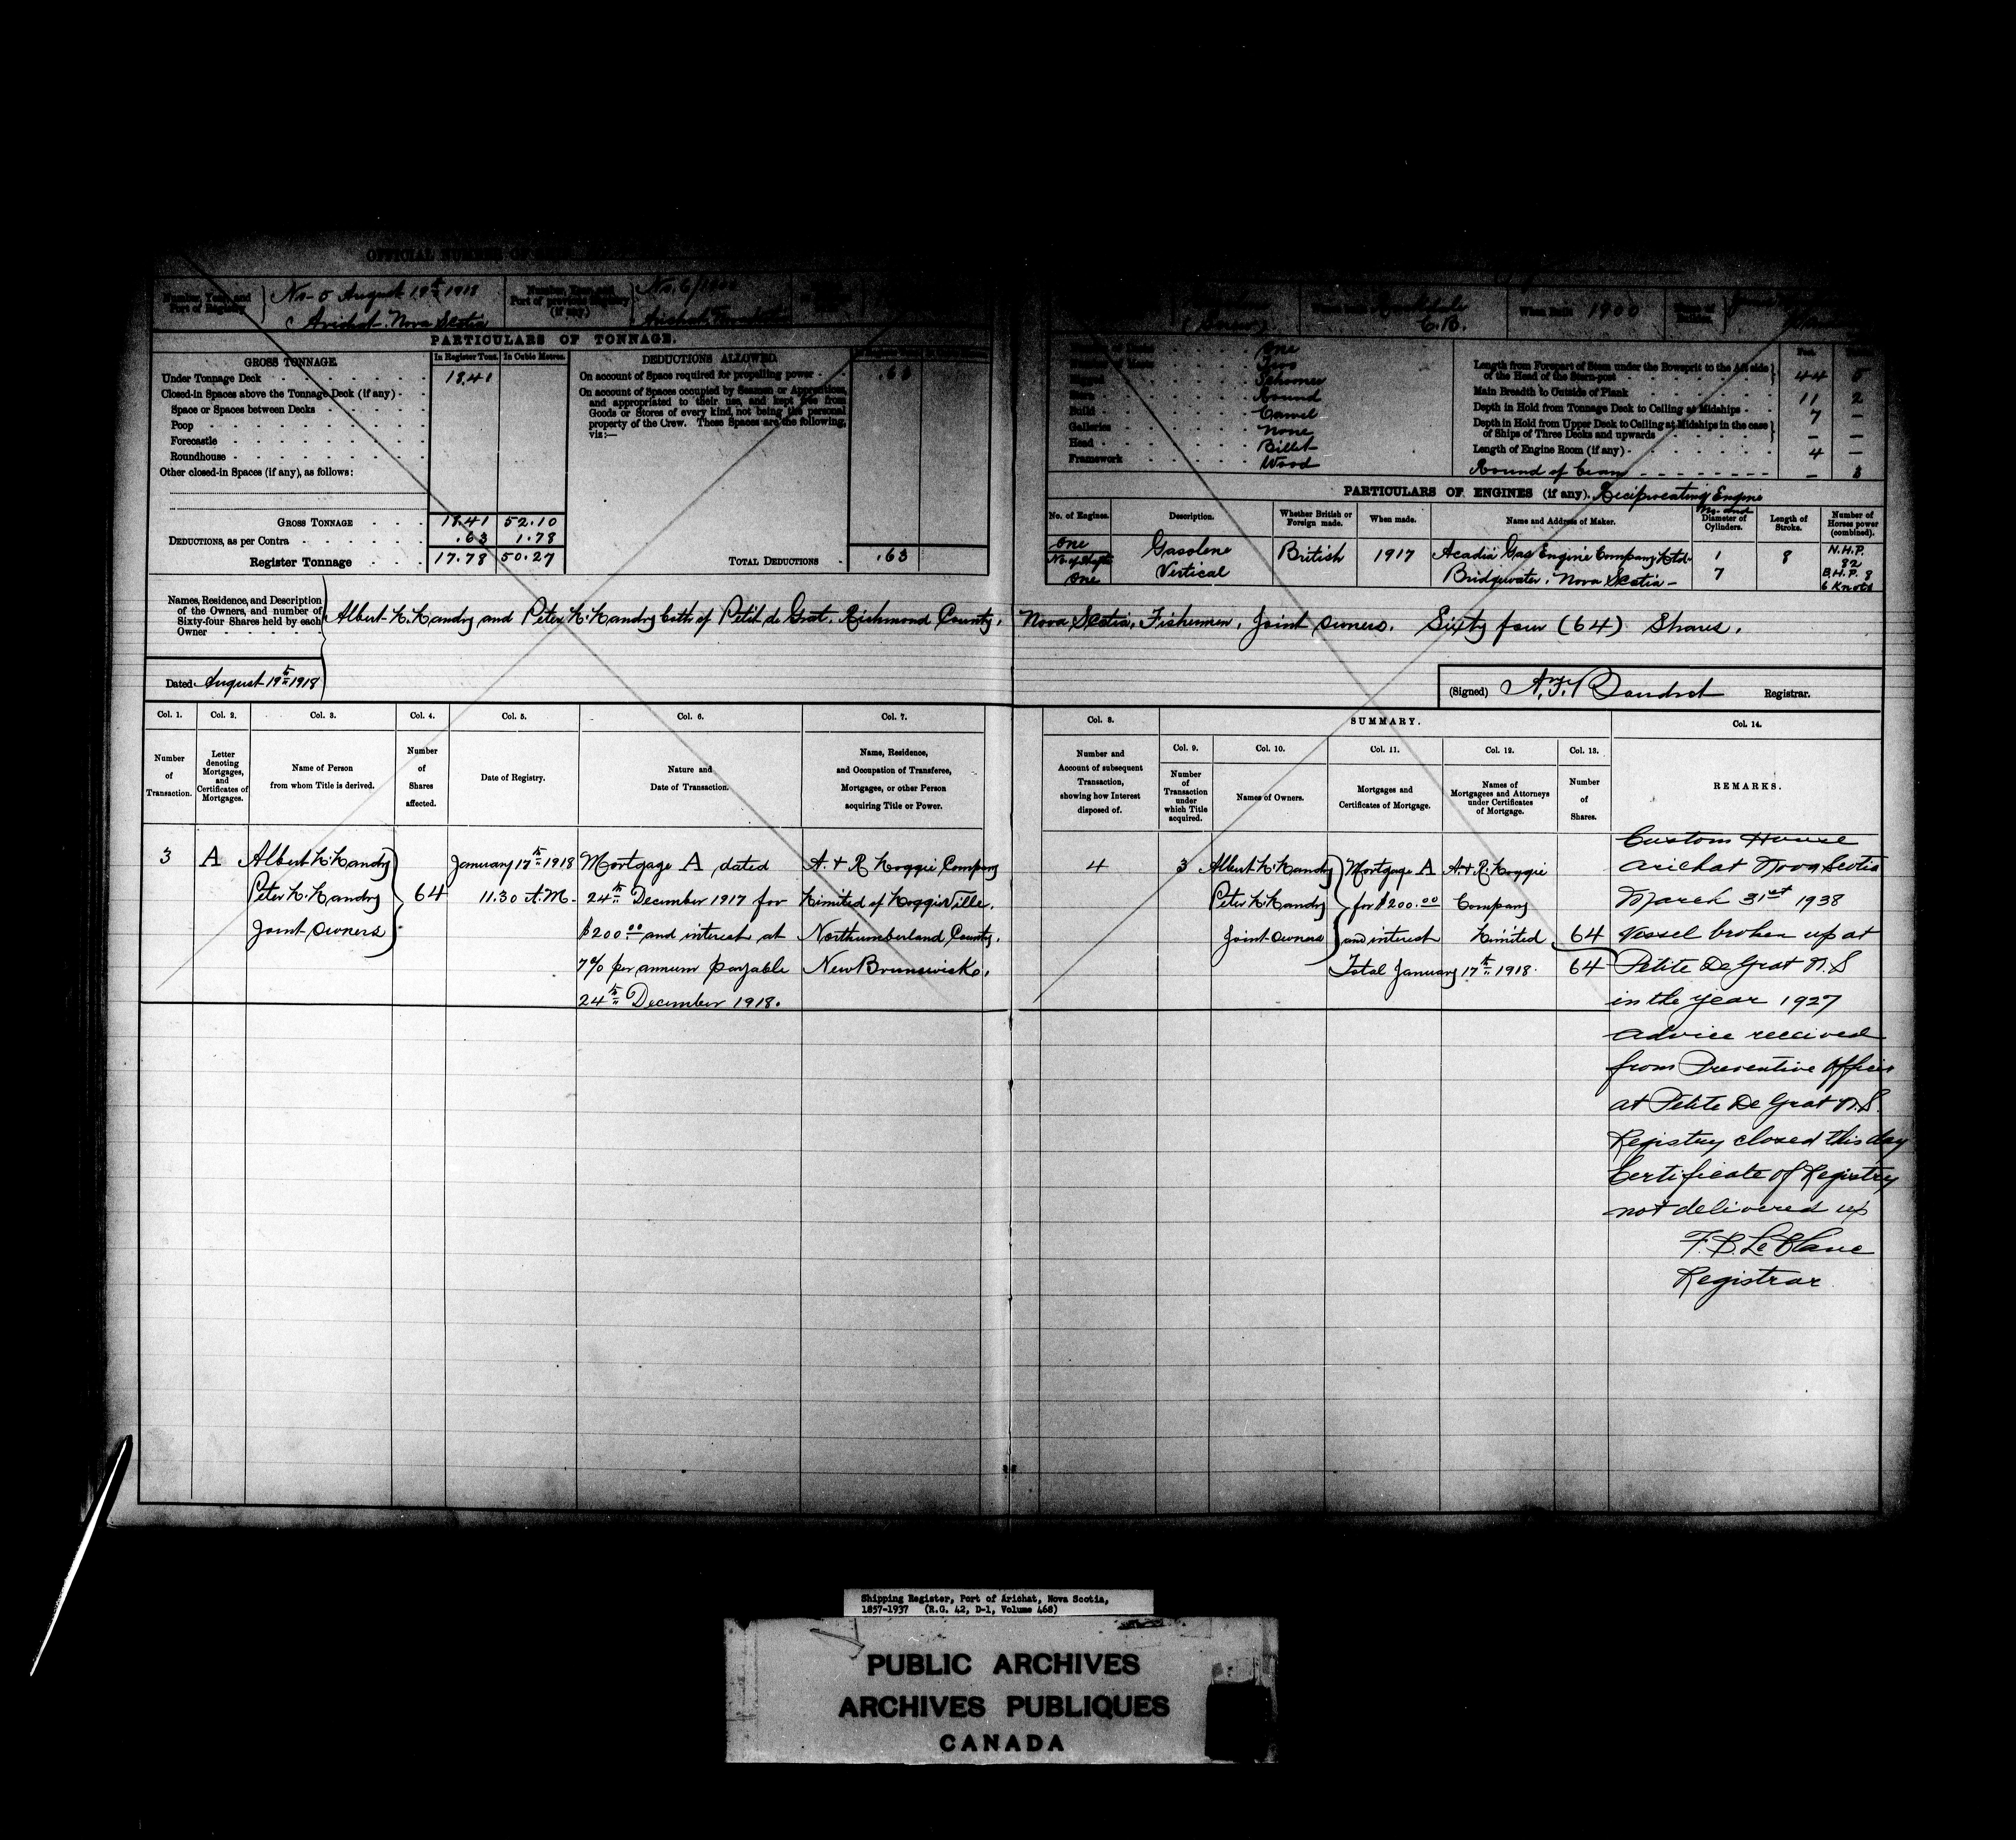 OFFICIAL NUMBER OF
Number, Year, and Port of Registry
No. 5 August 19th 1918
Arichat. Nova Scotia
Number, Year, and Port of previous Registry (if any)
No. 6/
Arichat
When built 1900
C.B.
PARTICULARS OF TONNAGE.
GROSS TONNAGE
In Register Tons. In Cubic Metres.
Under Tonnage Deck 18.41
Closed-in Spaces above the Tonnage Deck (if any)
Space or Spaces between Decks
Poop
Forecastle
Roundhouse
Other closed-in Spaces (if any), as follows:
GROSS TONNAGE 18.41 52.10
DEDUCTIONS, as per Contra .63 1.78
Register Tonnage 17.78 50.27
DEDUCTIONS ALLOWED
On account of Space required for propelling power .63
On account of Spaces occupied by Seamen or Apprentices,
and appropriated to their use, and kept free from
Goods or Stores of every kind, not being the personal
property of the Crew. These Spaces are the following,
viz:—
TOTAL DEDUCTIONS .63
One
Two
Schooner
Round
Build Carvel
Galleries None
Head Billet
Framework Wood
Feet.
Length from Forepart of Stem under the Bowsprit to the Aft side
of the Head of the Stern-post 44 5
Main Breadth to Outside of Plank 11 2
Depth in Hold from Tonnage Deck to Ceiling at Midships 7 —
Depth in Hold from Upper Deck to Ceiling at Midships in the case
of Ships of Three Decks and upwards — —
Length of Engine Room (if any) 4 —
Round of beam — 3
PARTICULARS OF ENGINES (if any). Reciprocating Engine
No. of Engines. Description. Whether British or Foreign made. When made. Name and Address of Maker. No. and Diameter of Cylinders. Length of Stroke. Number of Horses power (combined).
One Gasolene British 1917 Acadia Gas Engine Company Ltd. 1 8 N.H.P.
No. of Shafts Vertical Bridgewater. Nova Scotia — 7 82
One B.H.P. 8
6 Knots
Names, Residence, and Description
of the Owners, and number of
Sixty-four Shares held by each
Owner
Albert L. Landry and Peter L. Landry both of Petit de Grat. Richmond County. Nova Scotia. Fishermen. Joint Owners. Sixty four (64) Shares.
Dated August 19th 1918
(Signed) Registrar.
Col. 1. Col. 2. Col. 3. Col. 4. Col. 5. Col. 6. Col. 7. Col. 8. SUMMARY. Col. 14.
Col. 9. Col. 10. Col. 11. Col. 12. Col. 13.
Number of Transaction.
Letter denoting Mortgages, and Certificates of Mortgages.
Name of Person from whom Title is derived.
Number of Shares affected.
Date of Registry.
Nature and Date of Transaction.
Name, Residence, and Occupation of Transferee, Mortgagee, or other Person acquiring Title or Power.
Number and Account of subsequent Transaction, showing how Interest disposed of.
Number of Transaction under which Title acquired.
Names of Owners.
Mortgages and Certificates of Mortgage.
Names of Mortgagees and Attorneys under Certificates of Mortgage.
Number of Shares.
REMARKS.
3 A
Albert L. Landry
Peter L. Landry
Joint Owners
64
January 17th 1918
11.30 A.M.
Mortgage A dated
24th December 1917 for
$200.00 and interest at
7% per annum payable
24th December 1918.
A. & R. Loggie Company
Limited of Loggieville.
Northumberland County.
New Brunswick.
4
3
Albert L. Landry
Peter L. Landry
Joint Owners
Mortgage A
for $200.00
and interest
A. & R. Loggie
Company
Limited
64
Total January 17th 1918. 64
Custom House
Arichat Nova Scotia
March 31st 1938
Vessel broken up at
Petite De Grat N.S
in the year 1927
advice received
from Preventive Officer
at Petite De Grat N.S.
Registry closed this day
Certificate of Registry
not delivered up
F. B. LeBlanc
Registrar
Shipping Register, Port of Arichat, Nova Scotia,
1857-1937 (R.G. 42, D-1, Volume 468)
PUBLIC ARCHIVES
ARCHIVES PUBLIQUES
CANADA